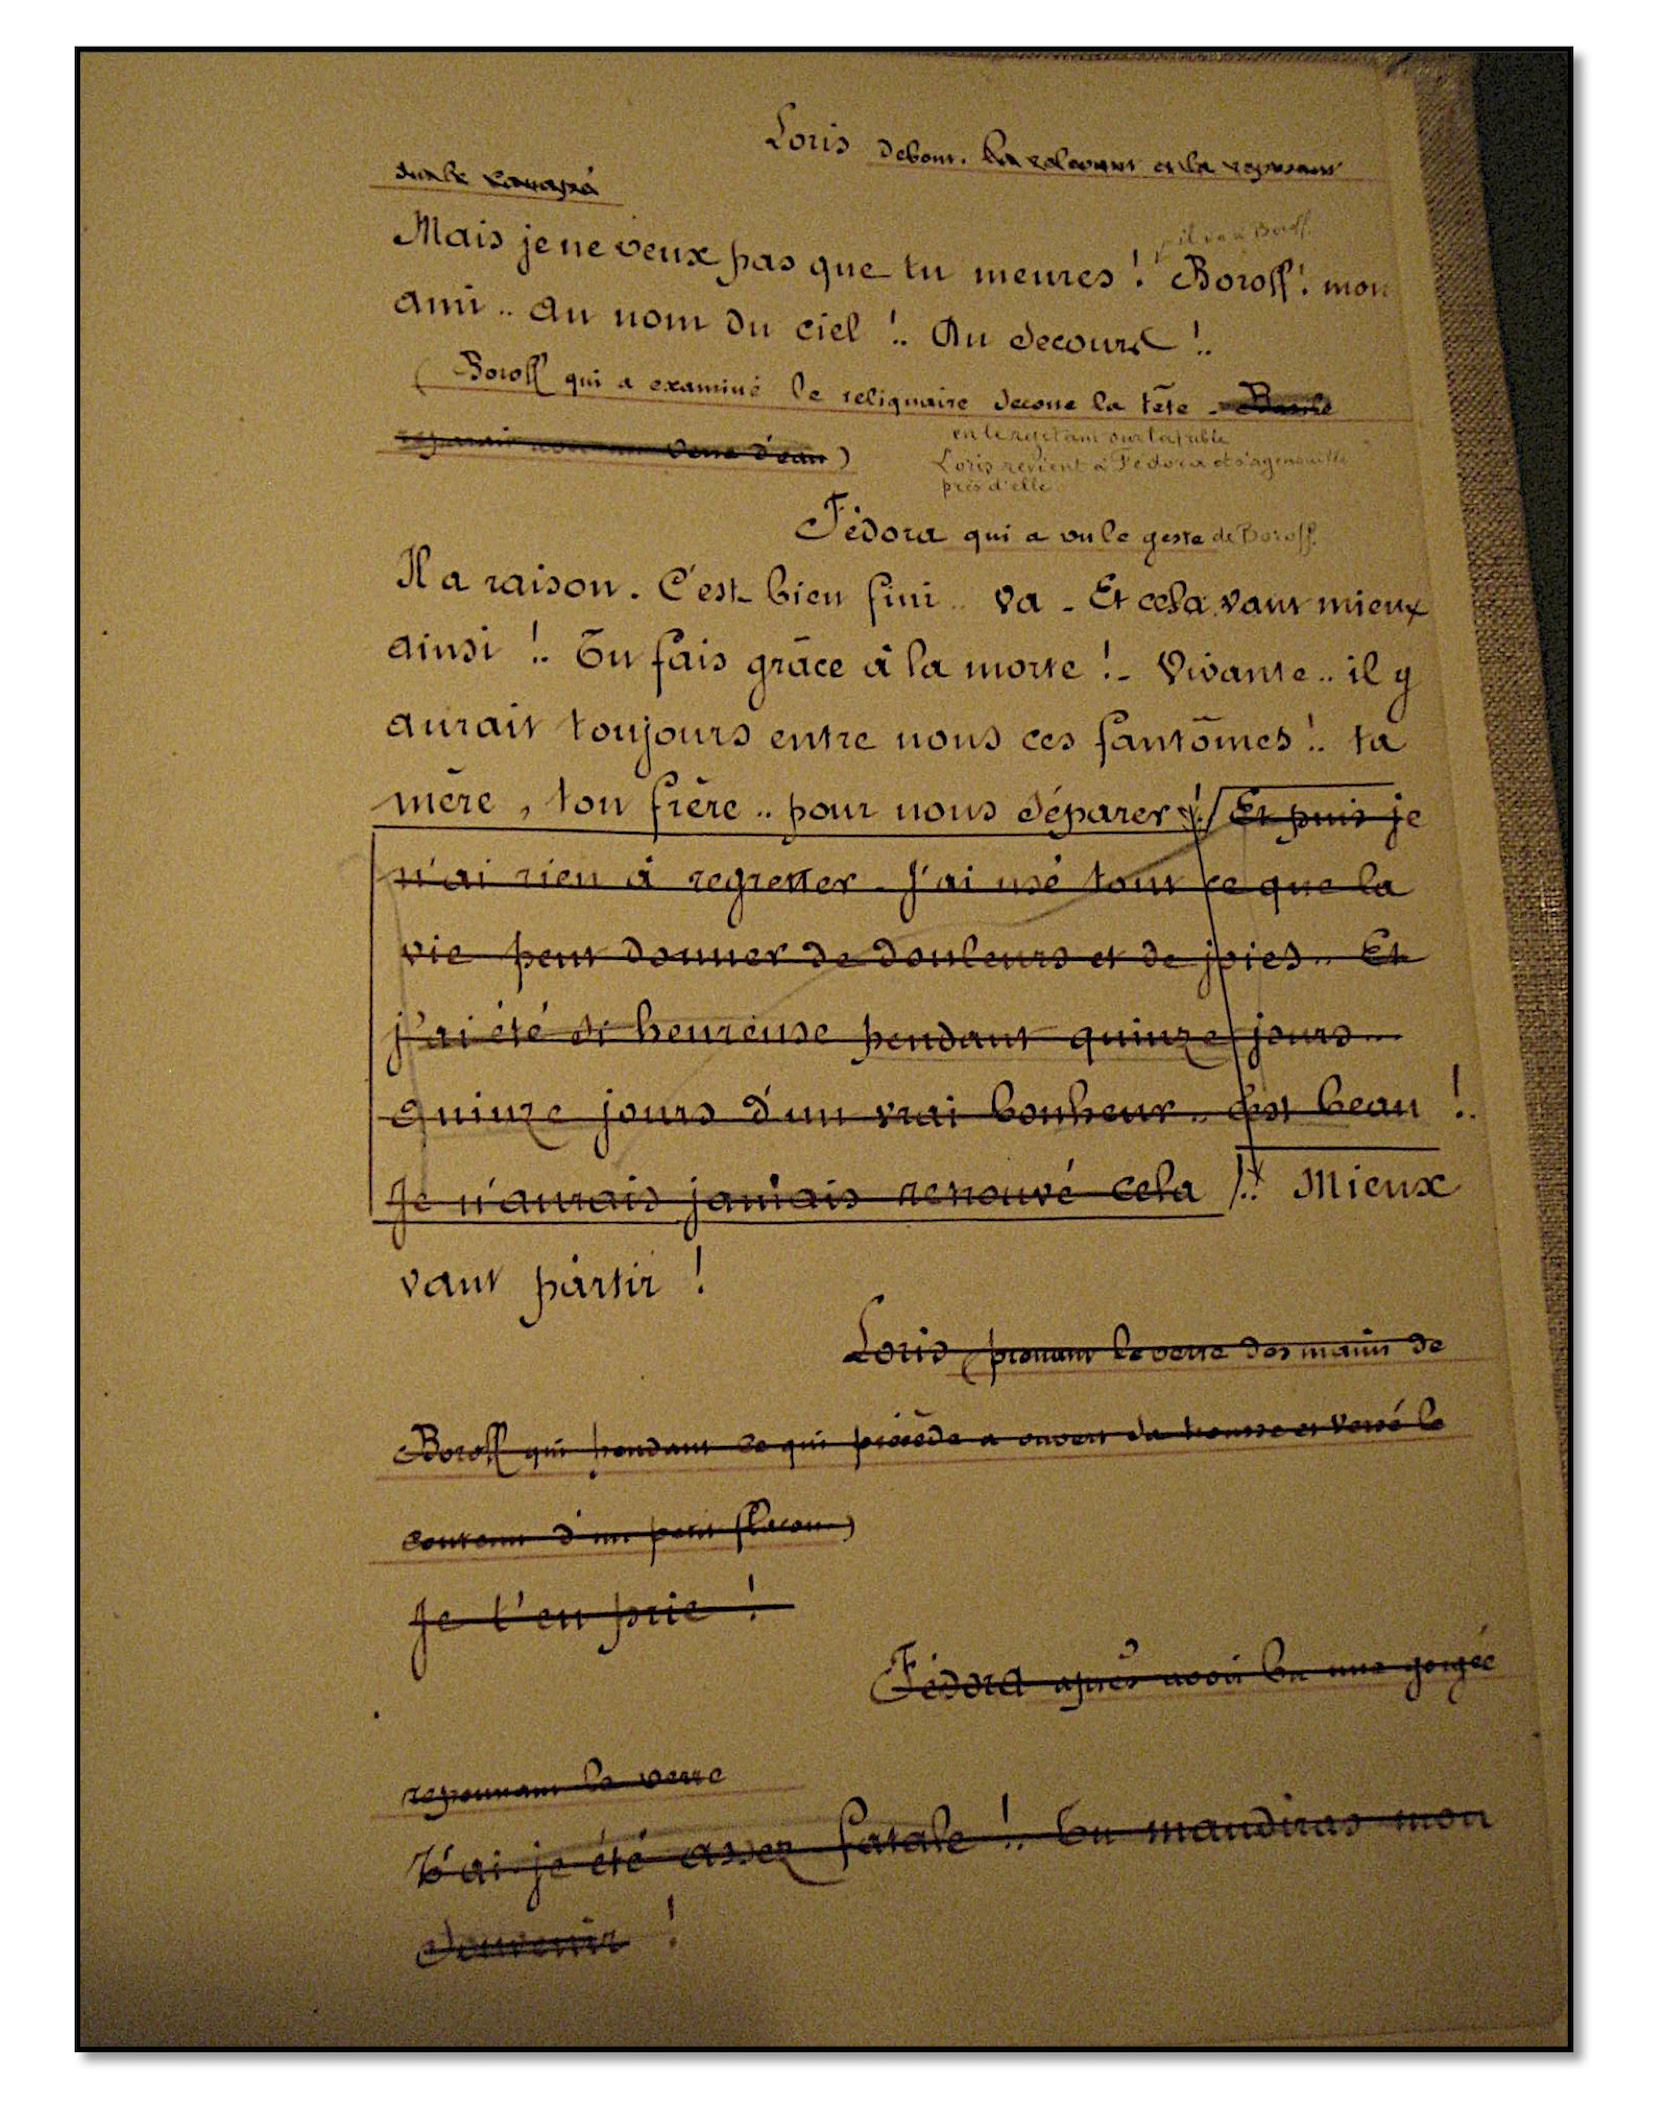 Loris debout. la relevant et la reposant
sur le canapé
il va à Boroff
Mais je ne veux pas que tu meures ! Boroff ! mon
ami .. au nom du ciel !.. Au secours !..
(Boroff qui a examiné le reliquaire secoue la tête - Basile
reparait avec un verre d'eau)
en le rejetant sur la table
Loris revient à Fédora et s'agenouille
près d'elle
Fédora qui a vu le geste de Boroff.
Il a raison. C'est bien fini .. va - Et cela vaut mieux
ainsi !.. Tu fais grâce à la morte !- Vivante .. il y
aurait toujours entre nous ces fantômes !.. ta
mère, ton frère .. pour nous séparer ! Et puis je
n'ai rien à regretter - J'ai usé tout ce que la
vie peut donner de douleurs et de joies .. Et
j'ai été si heureuse pendant quinze jours ...
Quinze jours d'un vrai bonheur .. c'est beau !..
Je n'aurais jamais retrouvé cela !.. Mieux
vaut partir !
Loris (prenant le verre des mains de
Boroff qui pendant ce qui précède a ouvert sa trousse et versé le
contenu d'un petit flacon)
Je t'en prie !
Fédora après avoir bu une gorgée
reprenant le verre
T'ai-je été assez fatale !.. Tu maudiras mon
souvenir !